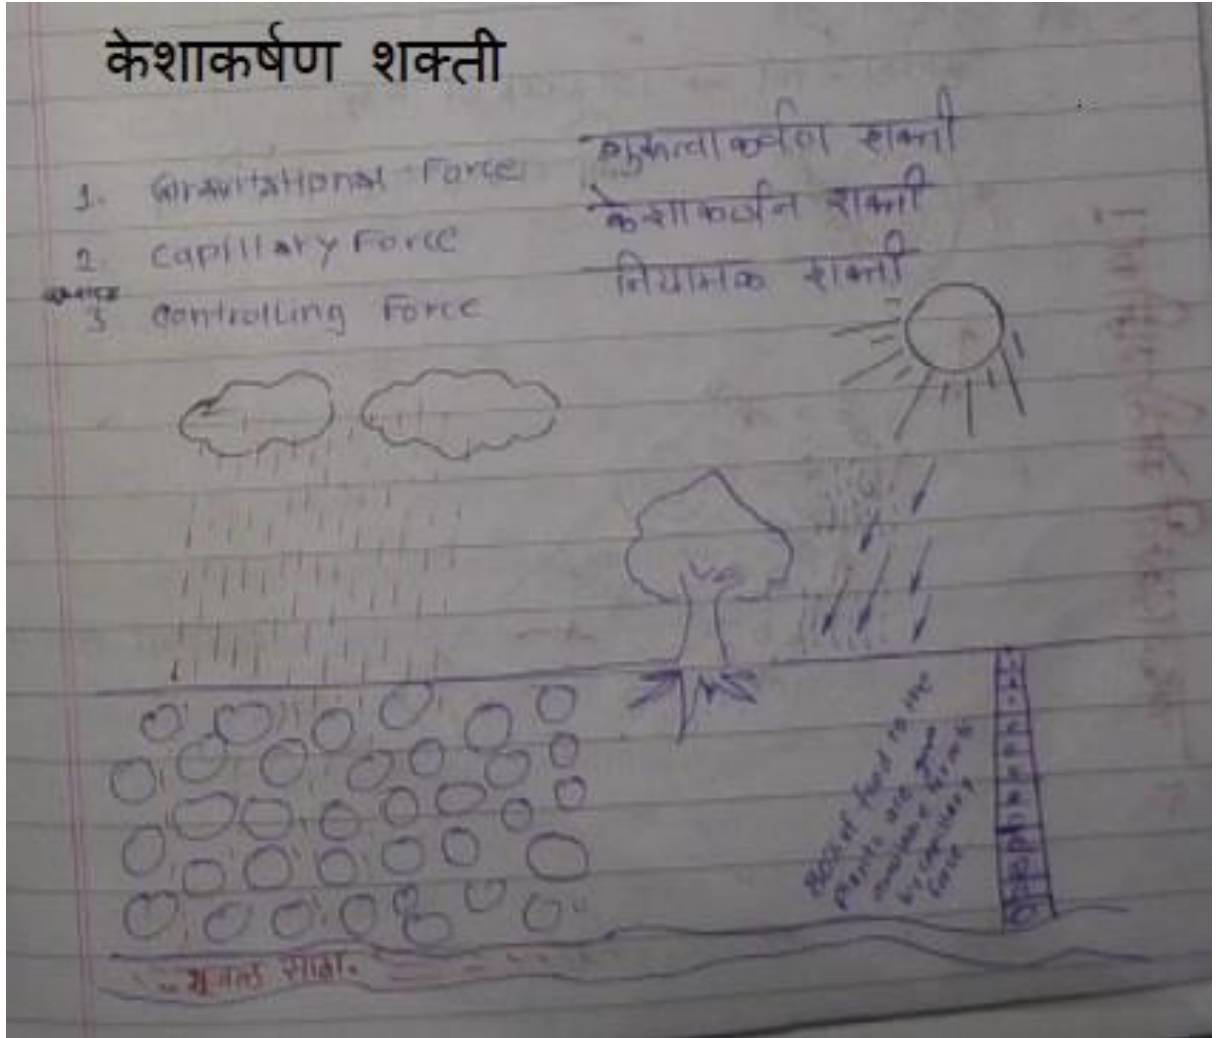 केशाकर्षण शक्ती
1. Gravitational Force गुरुत्वाकर्षण शक्ती
2. Capillary Force केशाकर्षन शक्ती
3 Controlling Force नियामक शक्ती
80% of food to the
plants are
available
by capillary
force
भूजल साठा.